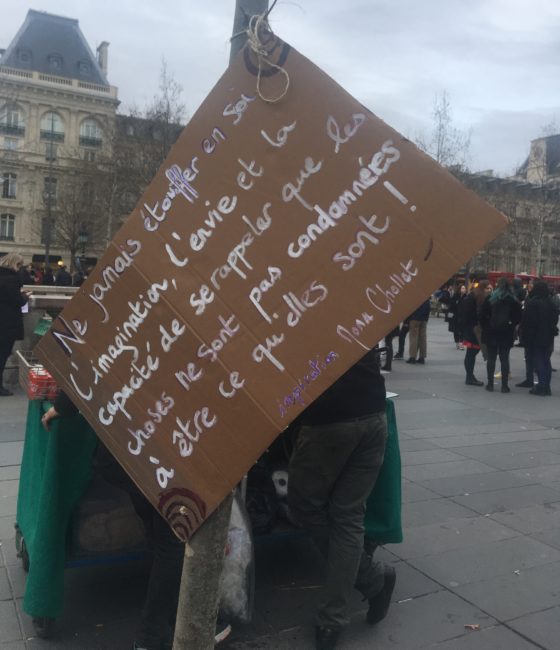 Ne jamais étouffer en soi
l'imagination, l'envie et la
capacité de se rappeler que les
choses ne sont pas condamnées
à être ce qu'elles sont !
inspiration Mona Chollet